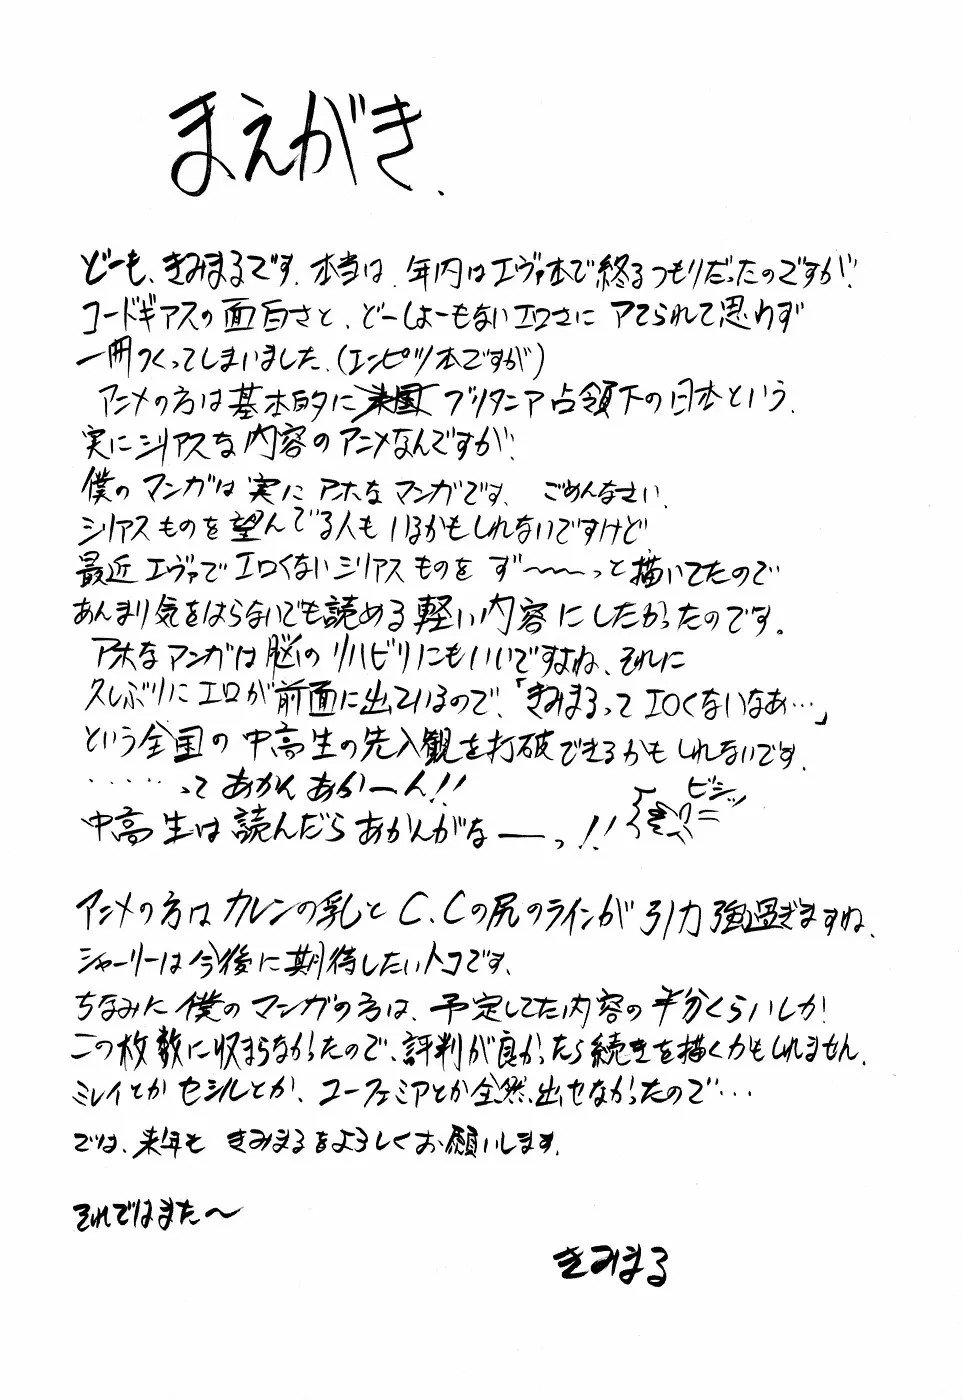 まえがき、
どーも、きみまるです。本当は、年内はエヴァ本で終るつもりだったのですが、
コードギアスの面白さと、どーしよーもないエロさに アてられて思わず
一冊つくってしまいました。(エンピツ本ですが)
アニメの方は基本的に ブリタニア占領下の日本という、
実にシリアスな内容のアニメなんですが、
僕のマンガは実にアホなマンガです、ごめんなさい、
シリアスものを望んでる人もいるかもしれないですけど
最近エヴァでエロくないシリアスものをず〜〜〜っと描いてたので
あんまり気をはらないでも読める軽い内容にしたかったのです。
アホなマンガは脳のリハビリにもいいですよね、それに
久しぶりにエロが前面に出ているので、「きみまるってエロくないなあ…」
という全国の中高生の先入観を打破できるかもしれないです、
・・・・・ってあかんあかーん!!
中高生は読んだらあかんがなーっ!! ビシッ
アニメの方はカレンの乳とC.Cの尻のラインが引力強過ぎますね、
シャーリーは今後に期待したいトコです、
ちなみに僕のマンガの方は、予定してた内容の半分くらいしか
この枚数に収まらなかったので、評判が良かったら続きを描くかもしれません、
ミレイとかセシルとか、ユーフェミアとか全然出せなかったので・・・
では、来年もきみまるをよろしくお願いします、
それではまた〜
きみまる